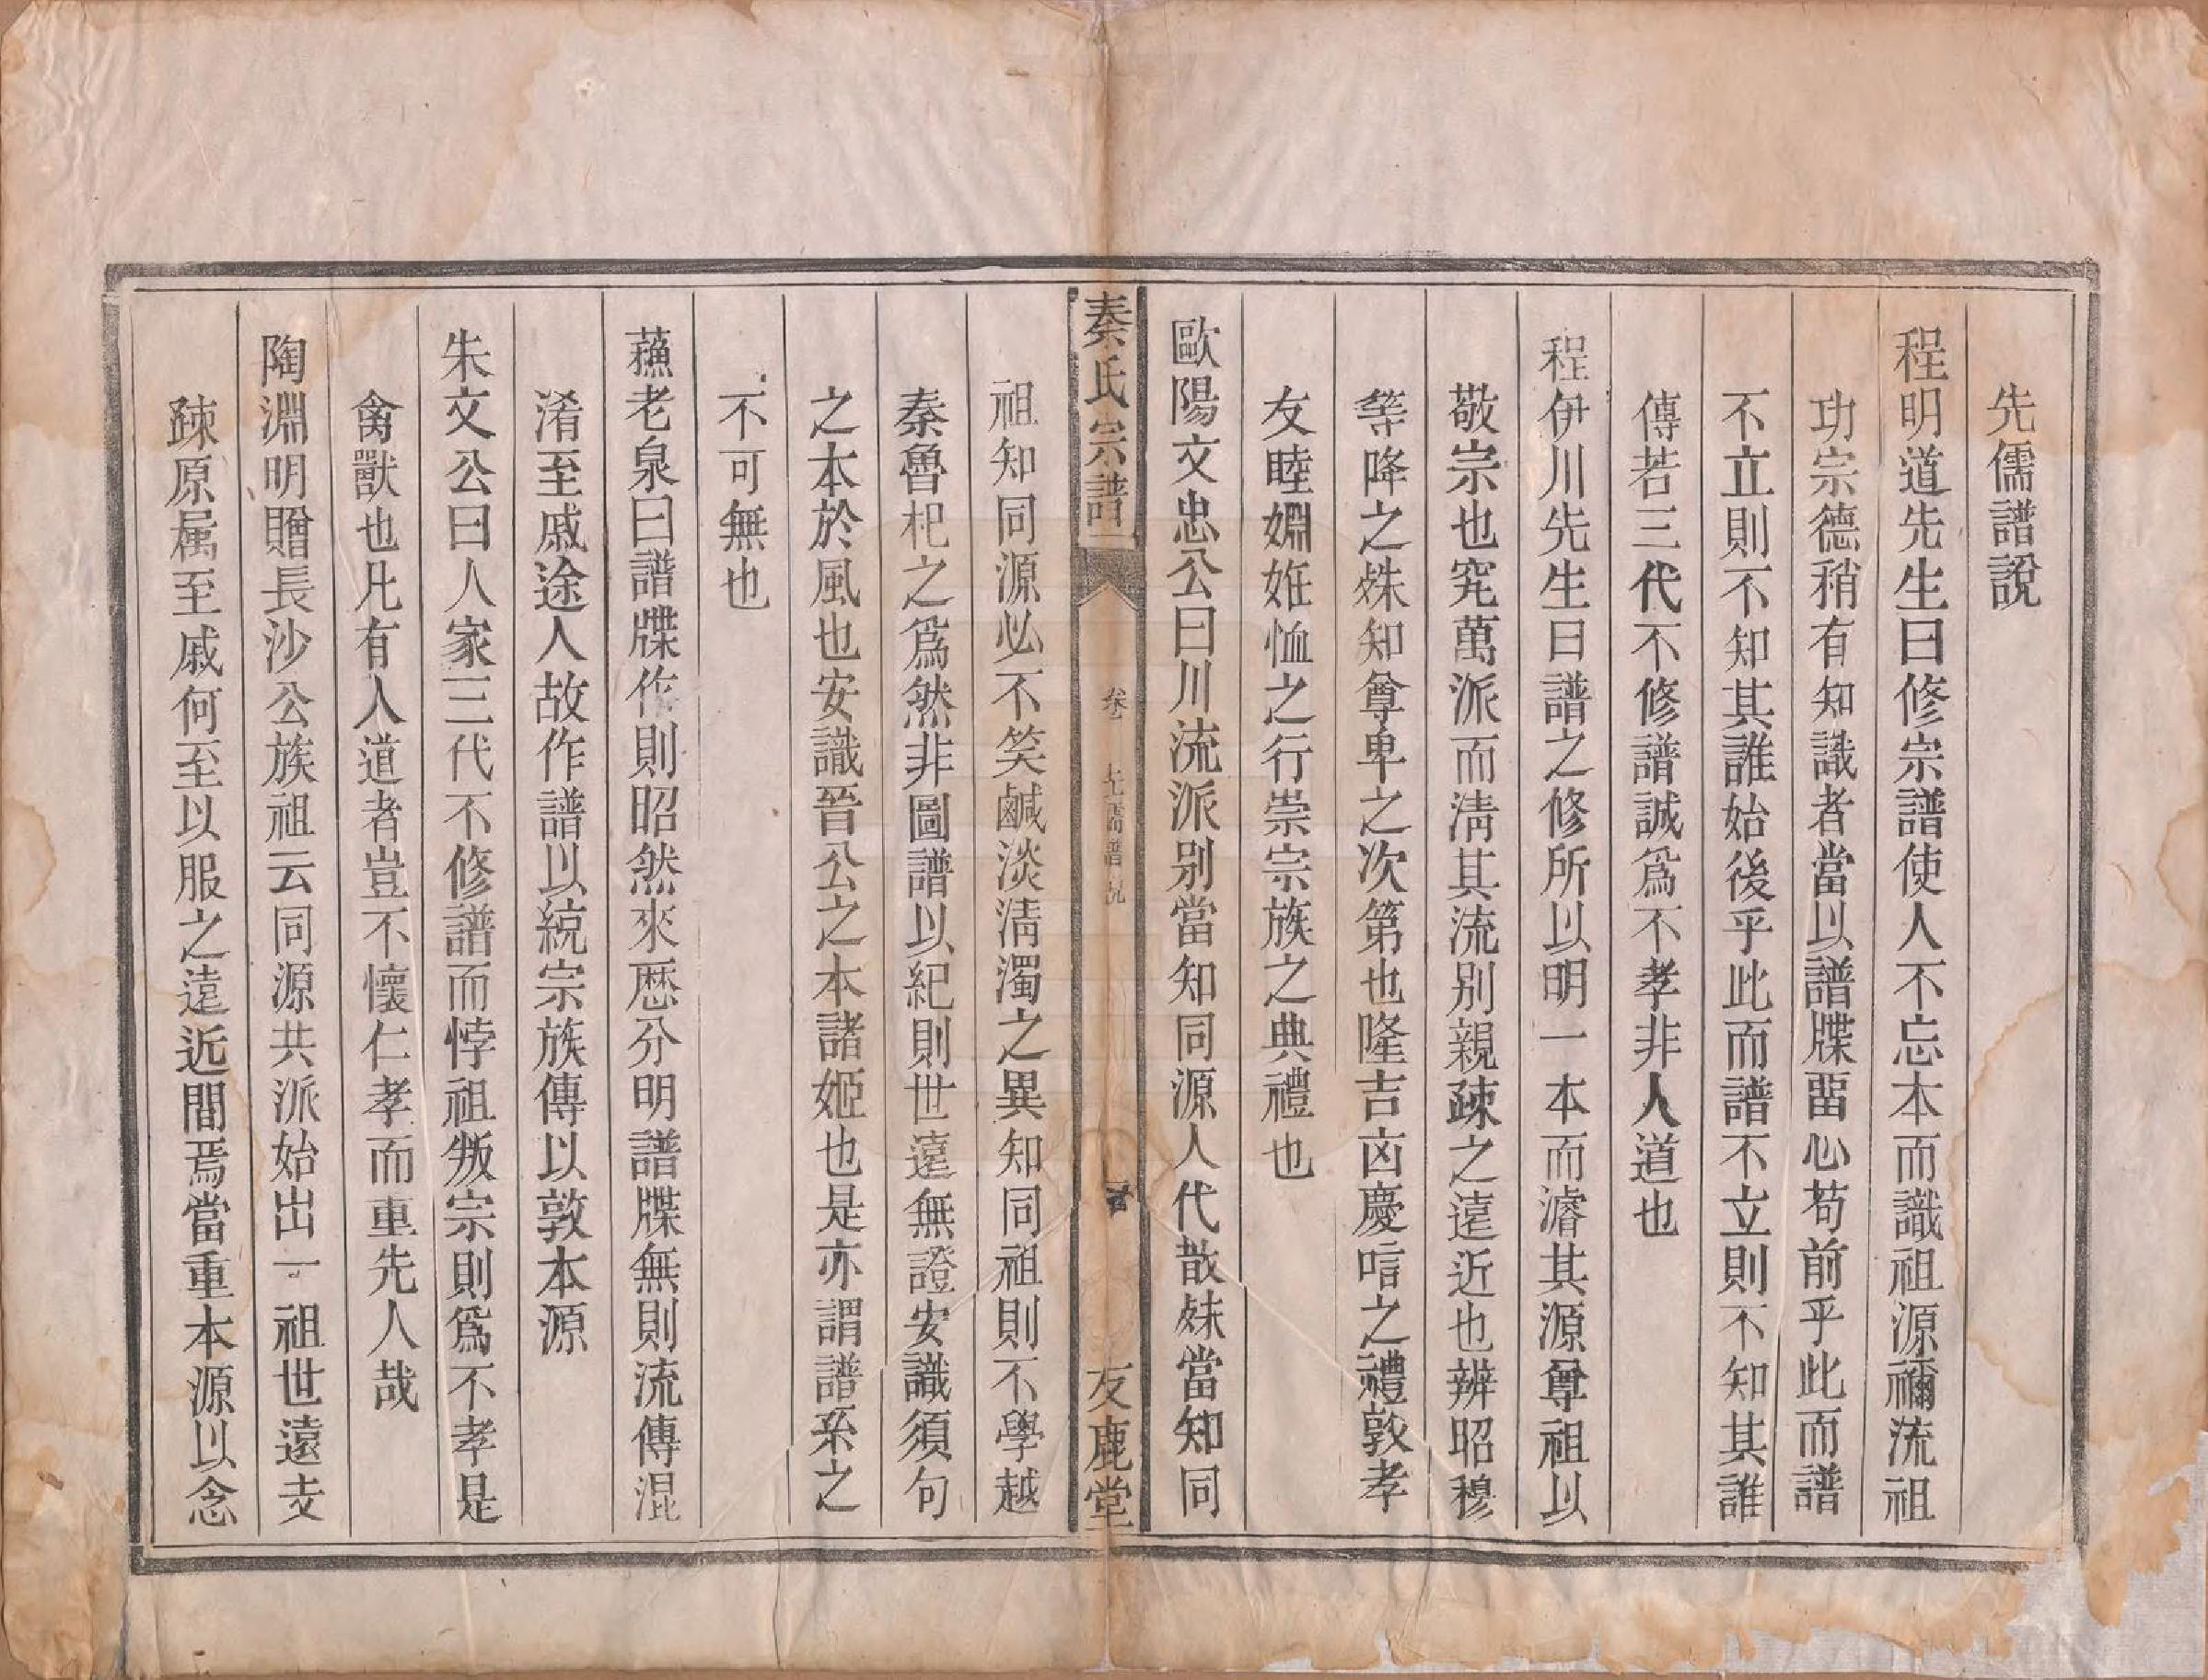 先儒譜說
程明道先生曰修宗譜使人不忘本而識祖源禰流祖
功宗德稍有知識者當以譜牒畱心苟前乎此而譜
不立則不知其誰始後乎此而譜不立則不知其誰
傳若三代不修譜誠爲不孝非人道也
程伊川先生日譜之修所以明一本而濬其源尊祖以
敬宗也究萬派而淸其流別親疎之遠近也辨昭穆
等降之殊知尊卑之次第也隆吉凶慶唁之禮敦孝
友睦婣姙恤之行崇宗族之典禮也
歐陽文忠公曰川流派别當知同源人代散殊當知同
秦氏宗譜
卷 先儒譜說
友鹿堂
祖知同源必不笑鹹淡淸濁之異知同祖則不學越
秦魯杞之爲然非圖譜以紀則世遠無證安識須句
之本於風也安識晉公之本諸姬也是亦謂譜系之
不可無也
蘓老泉曰譜牒作則昭然來歷分明譜牒無則流傳混
淆至戚途人故作譜以統宗族傳以敦本源
朱文公曰人家三代不修譜而悖祖叛宗則爲不孝是
禽獸也凡有人道者豈不懷仁孝而重先人哉
陶淵明贈長沙公族祖云同源共派始出一祖世遠支
疎原属至戚何至以服之遠近間焉當重本源以念